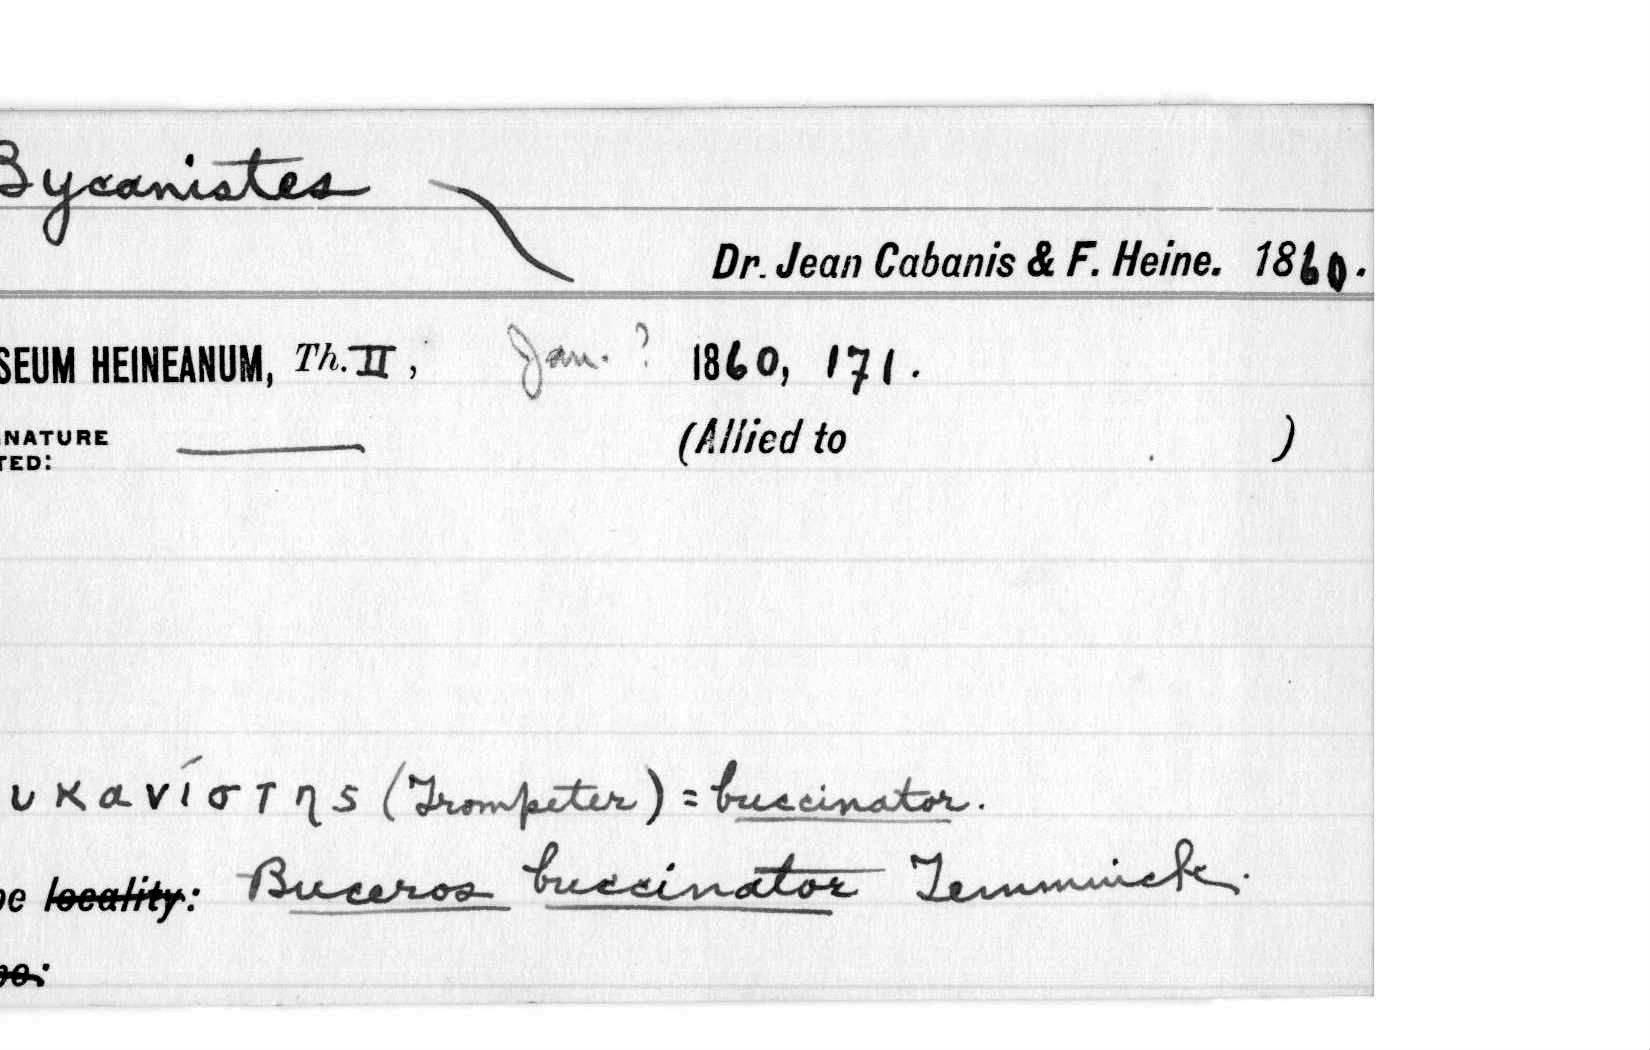 Bycanistes
Dr. Jean Cabanis & F. Heine. 1860.
SEUM HEINEANUM, Th. II, Jan. ? 1860, 171.
NATURE
TED:
(Allied to )
υκανίστης (Trompeter) = buccinator.
pe locality: Buceros buccinator Temminck.